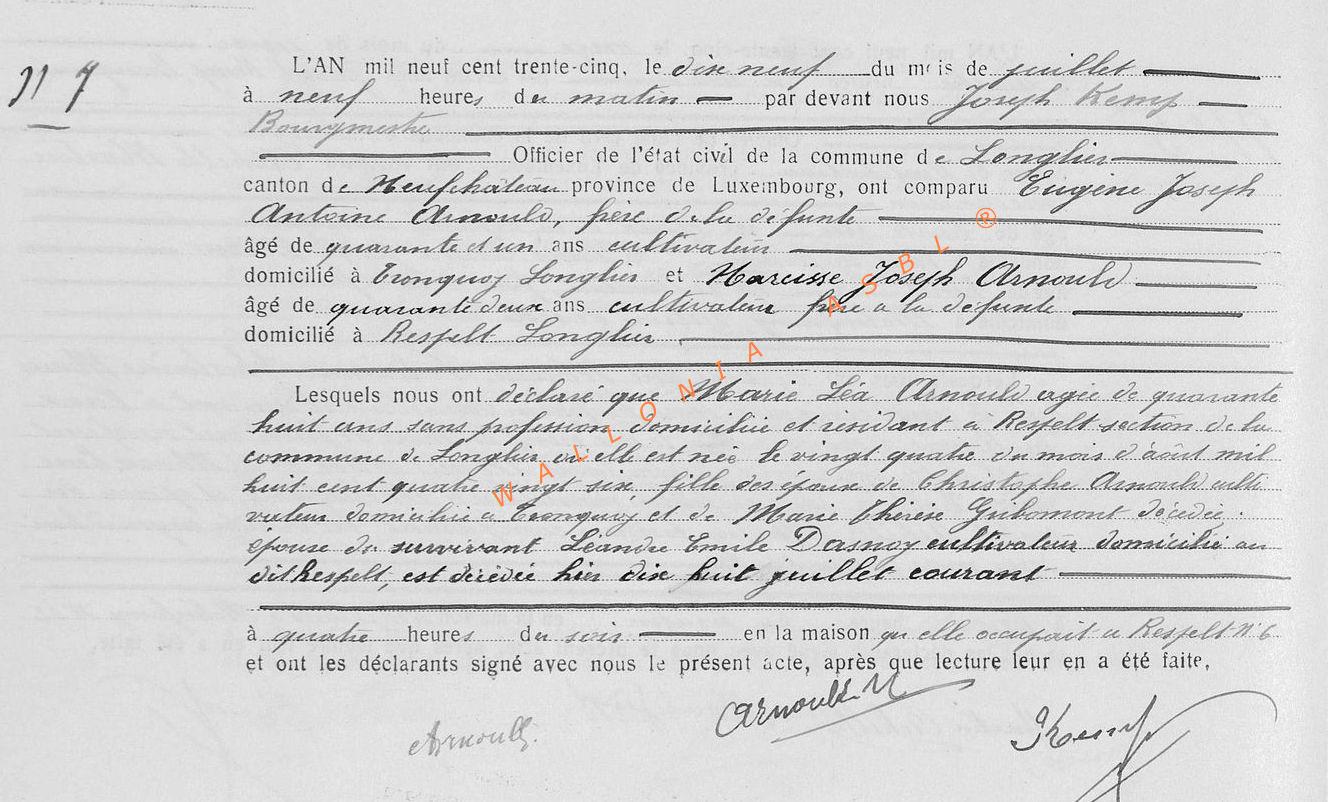 N 7
L'AN mil neuf cent trente-cinq, le dix neuf du mois de juillet
à neuf heures du matin par devant nous Joseph Kemp
Bourgmestre
Officier de l'état civil de la commune de Longlier
canton de Neufchâteau province de Luxembourg, ont comparu Eugène Joseph
Antoine Arnould, frère de la défunte
âgé de quarante et un ans cultivateur
domicilié à Tronquoy Longlier et Narcisse Joseph Arnould
âgé de quarante deux ans cultivateur frère a la défunte
domicilié à Respelt Longlier
Lesquels nous ont déclaré que Marie Léa Arnould agée de quarante
huit ans sans profession domiciliée et résidant à Respelt section de la
commune de Longlier où elle est née le vingt quatre du mois d'août mil
huit cent quatre vingt six, fille des époux de Christophe Arnould culti
vateur domicilié a Tronquoy et de Marie Thérèse Gribomont décédée.
épouse du survivant Léandre Emile Dasnoy cultivateur domicilié au
dit Respelt, est décédée hier dix huit juillet courant
à quatre heures du soir en la maison qu'elle occupait a Respelt N° 6
et ont les déclarants signé avec nous le présent acte, après que lecture leur en a été faite,
Arnould. N
Arnould.
JKemp
WALLONIA ASBL ®